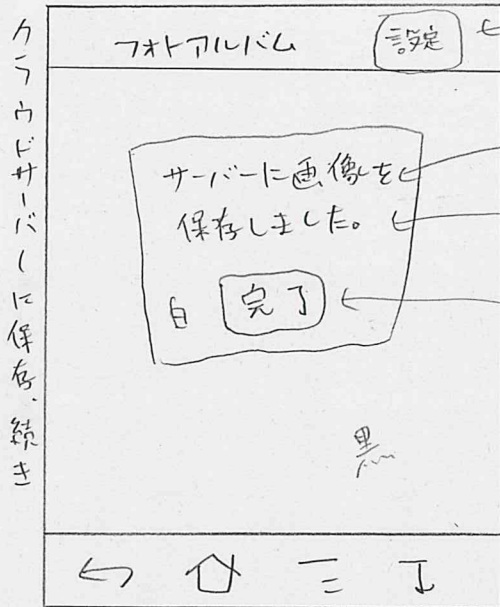 クラウドサーバーに保存、続き
フォトアルバム
設定
サーバーに画像を
保存しました。
白
完了
黒